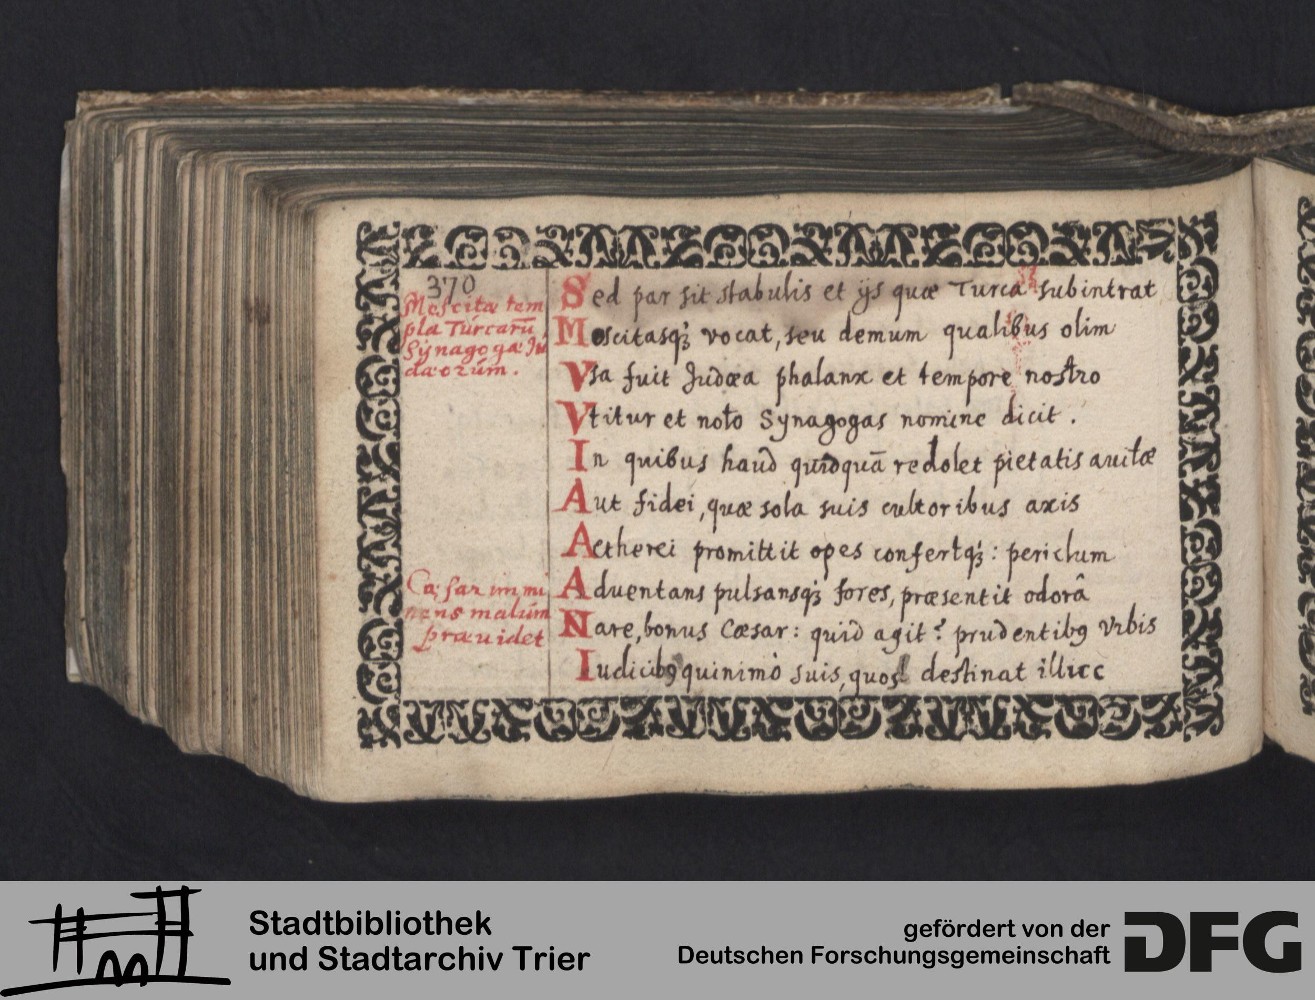 370
Mescitæ tem
pla Turcarū
Synagogæ Iu
dæorúm.
Sed par sit stabulis et ijs quæ Turca subintrat
Moscitasqȝ vocat, seu demum qualibus olim
Vsa fuit Judæa phalanx et tempore nostro
Vtitur et noto Synagogas nomine dicit.
In quibus haud quidquā redolet pietatis auitæ
Aut fidei, quæ sola suis cultoribus axis
Aetherei promittit opes confertqȝ: periclum
Cæsar immi
nens malúm
præuidet
Aduentans pulsansqȝ fores, præsentit odorâ
Nare, bonus Cæsar: quid agit? prudentibꝯ vrbis
Iudicibꝯ quinimò suis, quos destinat illucc
Stadtbibliothek
und Stadtarchiv Trier
gefördert von der
Deutschen Forschungsgemeinschaft
DFG